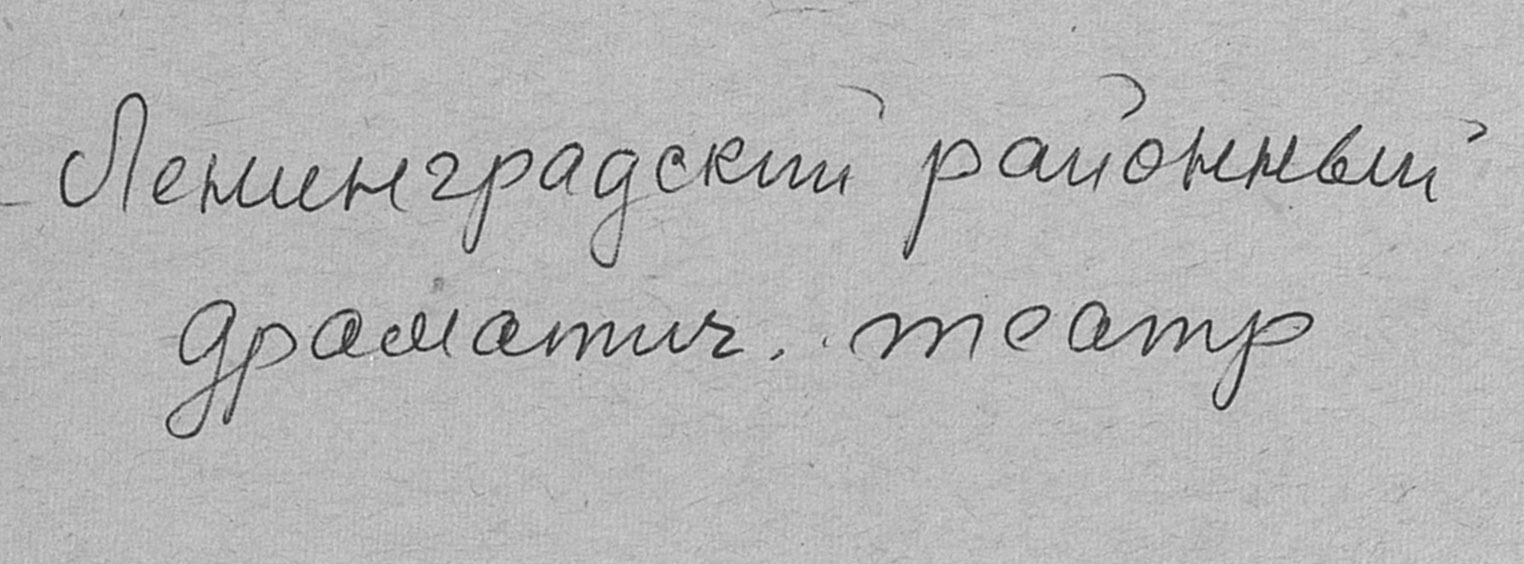 Ленинградский районный
драматич. театр